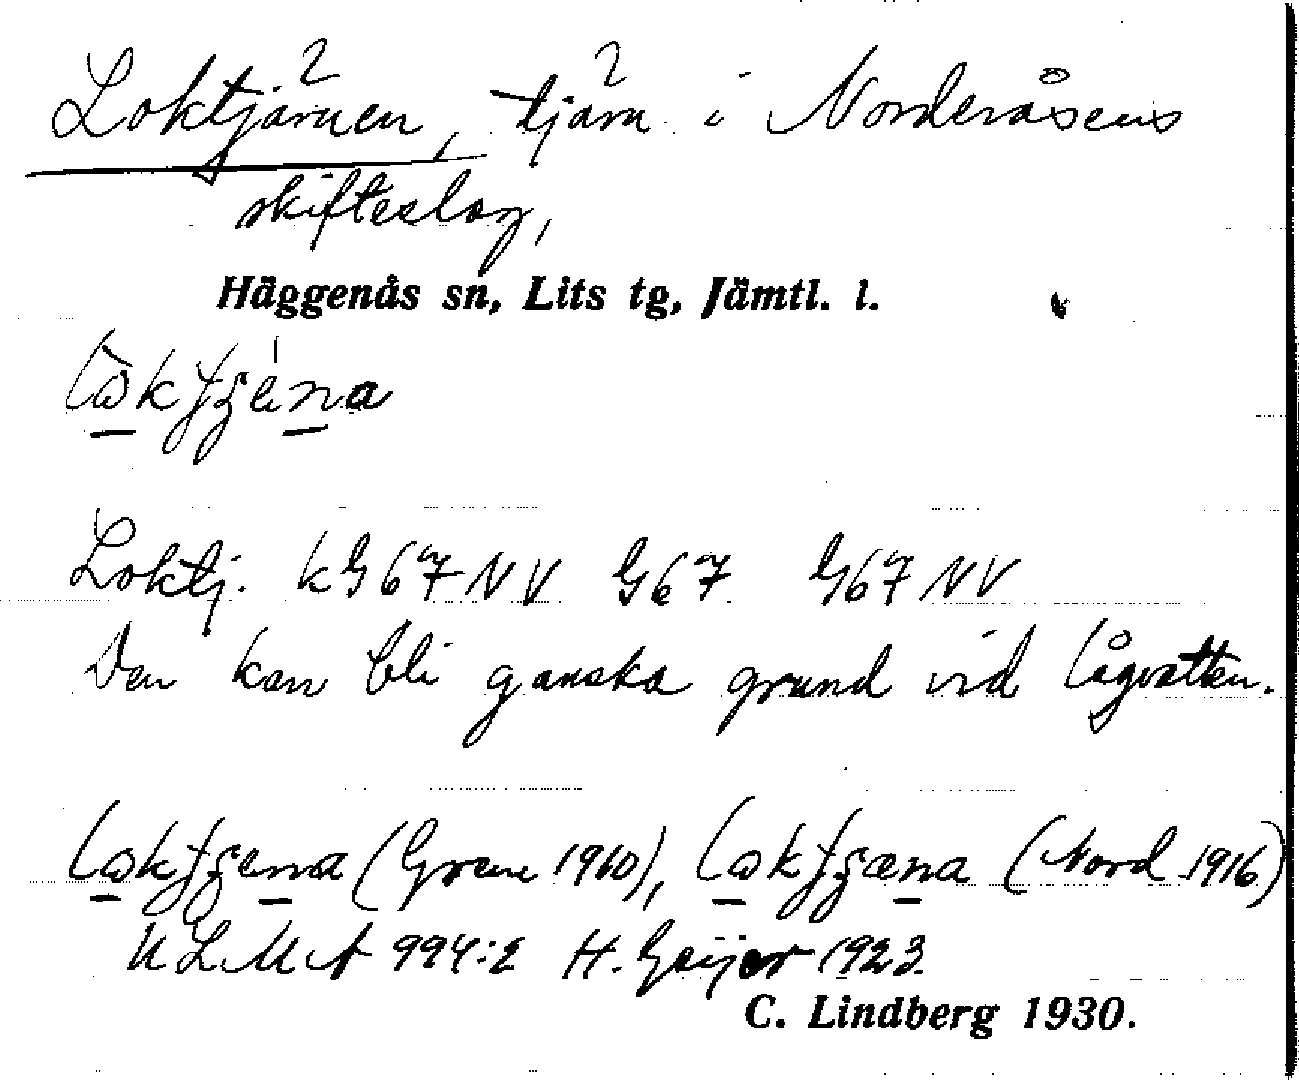 Loktjärnen, tjärn i Norderåsens
skifteslag,
Häggenås sn, Lits tg, Jämtl. l.
Loktj. kG67NV G67 G67NV
Den kan bli ganska grund vid lågvatten.
1960), (Nord 1916)
ULMA 994:2 H. Geijer 1923.
C. Lindberg 1930.